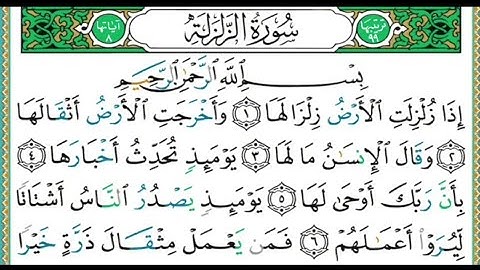 ترتيبها ٩٩ سُورَةُ الزَّلْزَلَةِ آياتها ٨
بِسْمِ اللَّهِ الرَّحْمَٰنِ الرَّحِيمِ
إِذَا زُلْزِلَتِ الْأَرْضُ زِلْزَالَهَا ١ وَأَخْرَجَتِ الْأَرْضُ أَثْقَالَهَا
٢ وَقَالَ الْإِنسَٰنُ مَا لَهَا ٣ يَوْمَئِذٍ تُحَدِّثُ أَخْبَارَهَا ٤
بِأَنَّ رَبَّكَ أَوْحَىٰ لَهَا ٥ يَوْمَئِذٍ يَصْدُرُ النَّاسُ أَشْتَاتًا
لِّيُرَوْا أَعْمَٰلَهُمْ ٦ فَمَن يَعْمَلْ مِثْقَالَ ذَرَّةٍ خَيْرًا